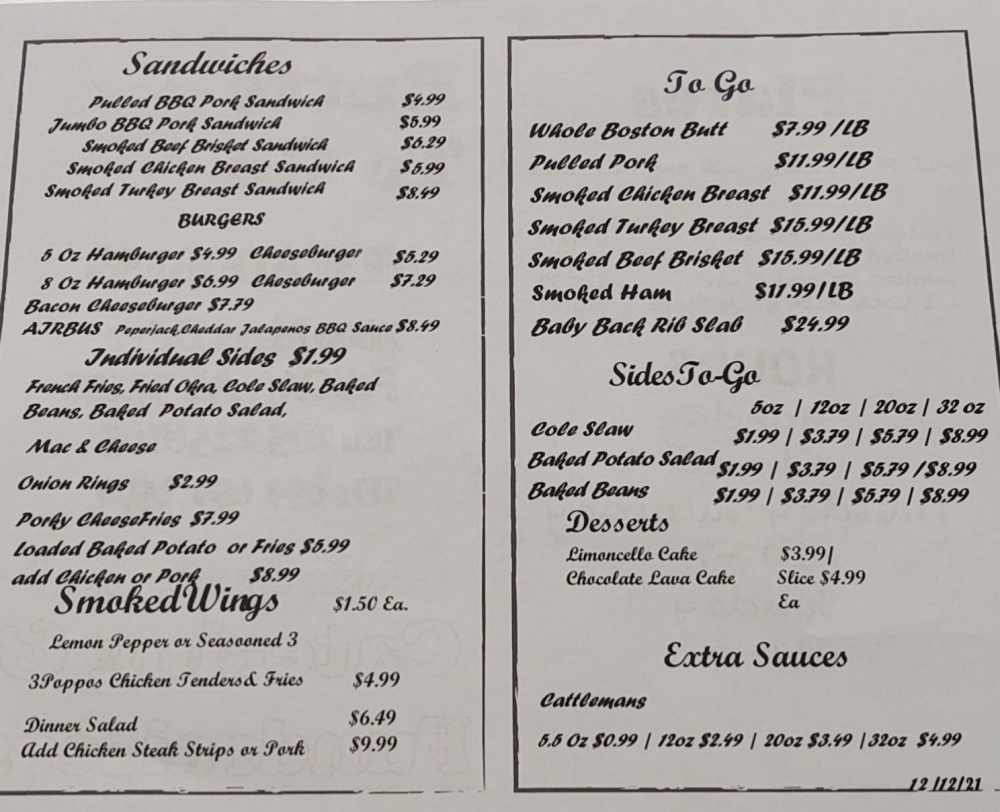 Sandwiches
Pulled BBQ Pork Sandwich $4.99
Jumbo BBQ Pork Sandwich $5.99
Smoked Beef Brisket Sandwich $6.29
Smoked Chicken Breast Sandwich $5.99
Smoked Turkey Breast Sandwich $8.49
BURGERS
5 Oz Hamburger $4.99 Cheeseburger $5.29
8 Oz Hamburger $6.99 Cheseburger $7.29
Bacon Cheeseburger $7.79
AIRBUS Peperjack,Cheddar Jalapenos BBQ Sauce $8.49
Individual Sides $1.99
French Fries, Fried Okra, Cole Slaw, Baked
Beans, Baked Potato Salad,
Mac & Cheese
Onion Rings $2.99
Porky CheeseFries $7.99
Loaded Baked Potato or Fries $5.99
add Chicken or Pork $8.99
Smoked Wings $1.50 Ea.
Lemon Pepper or Seasooned 3
3Poppos Chicken Tenders& Fries $4.99
Dinner Salad $6.49
Add Chicken Steak Strips or Pork $9.99
To Go
Whole Boston Butt $7.99 /LB
Pulled Pork $11.99/LB
Smoked Chicken Breast $11.99/LB
Smoked Turkey Breast $15.99/LB
Smoked Beef Brisket $15.99/LB
Smoked Ham $11.99/LB
Baby Back Rib Slab $24.99
Sides To-Go
5oz | 12oz | 20oz | 32 oz
Cole Slaw $1.99 | $3.79 | $5.79 | $8.99
Baked Potato Salad $1.99 | $3.79 | $5.79 /$8.99
Baked Beans $1.99 | $3.79 | $5.79 | $8.99
Desserts
Limoncello Cake $3.99|
Chocolate Lava Cake Slice $4.99
Ea
Extra Sauces
Cattlemans
5.5 Oz $0.99 | 12oz $2.49 | 20oz $3.49 |32oz $4.99
12 /12/21